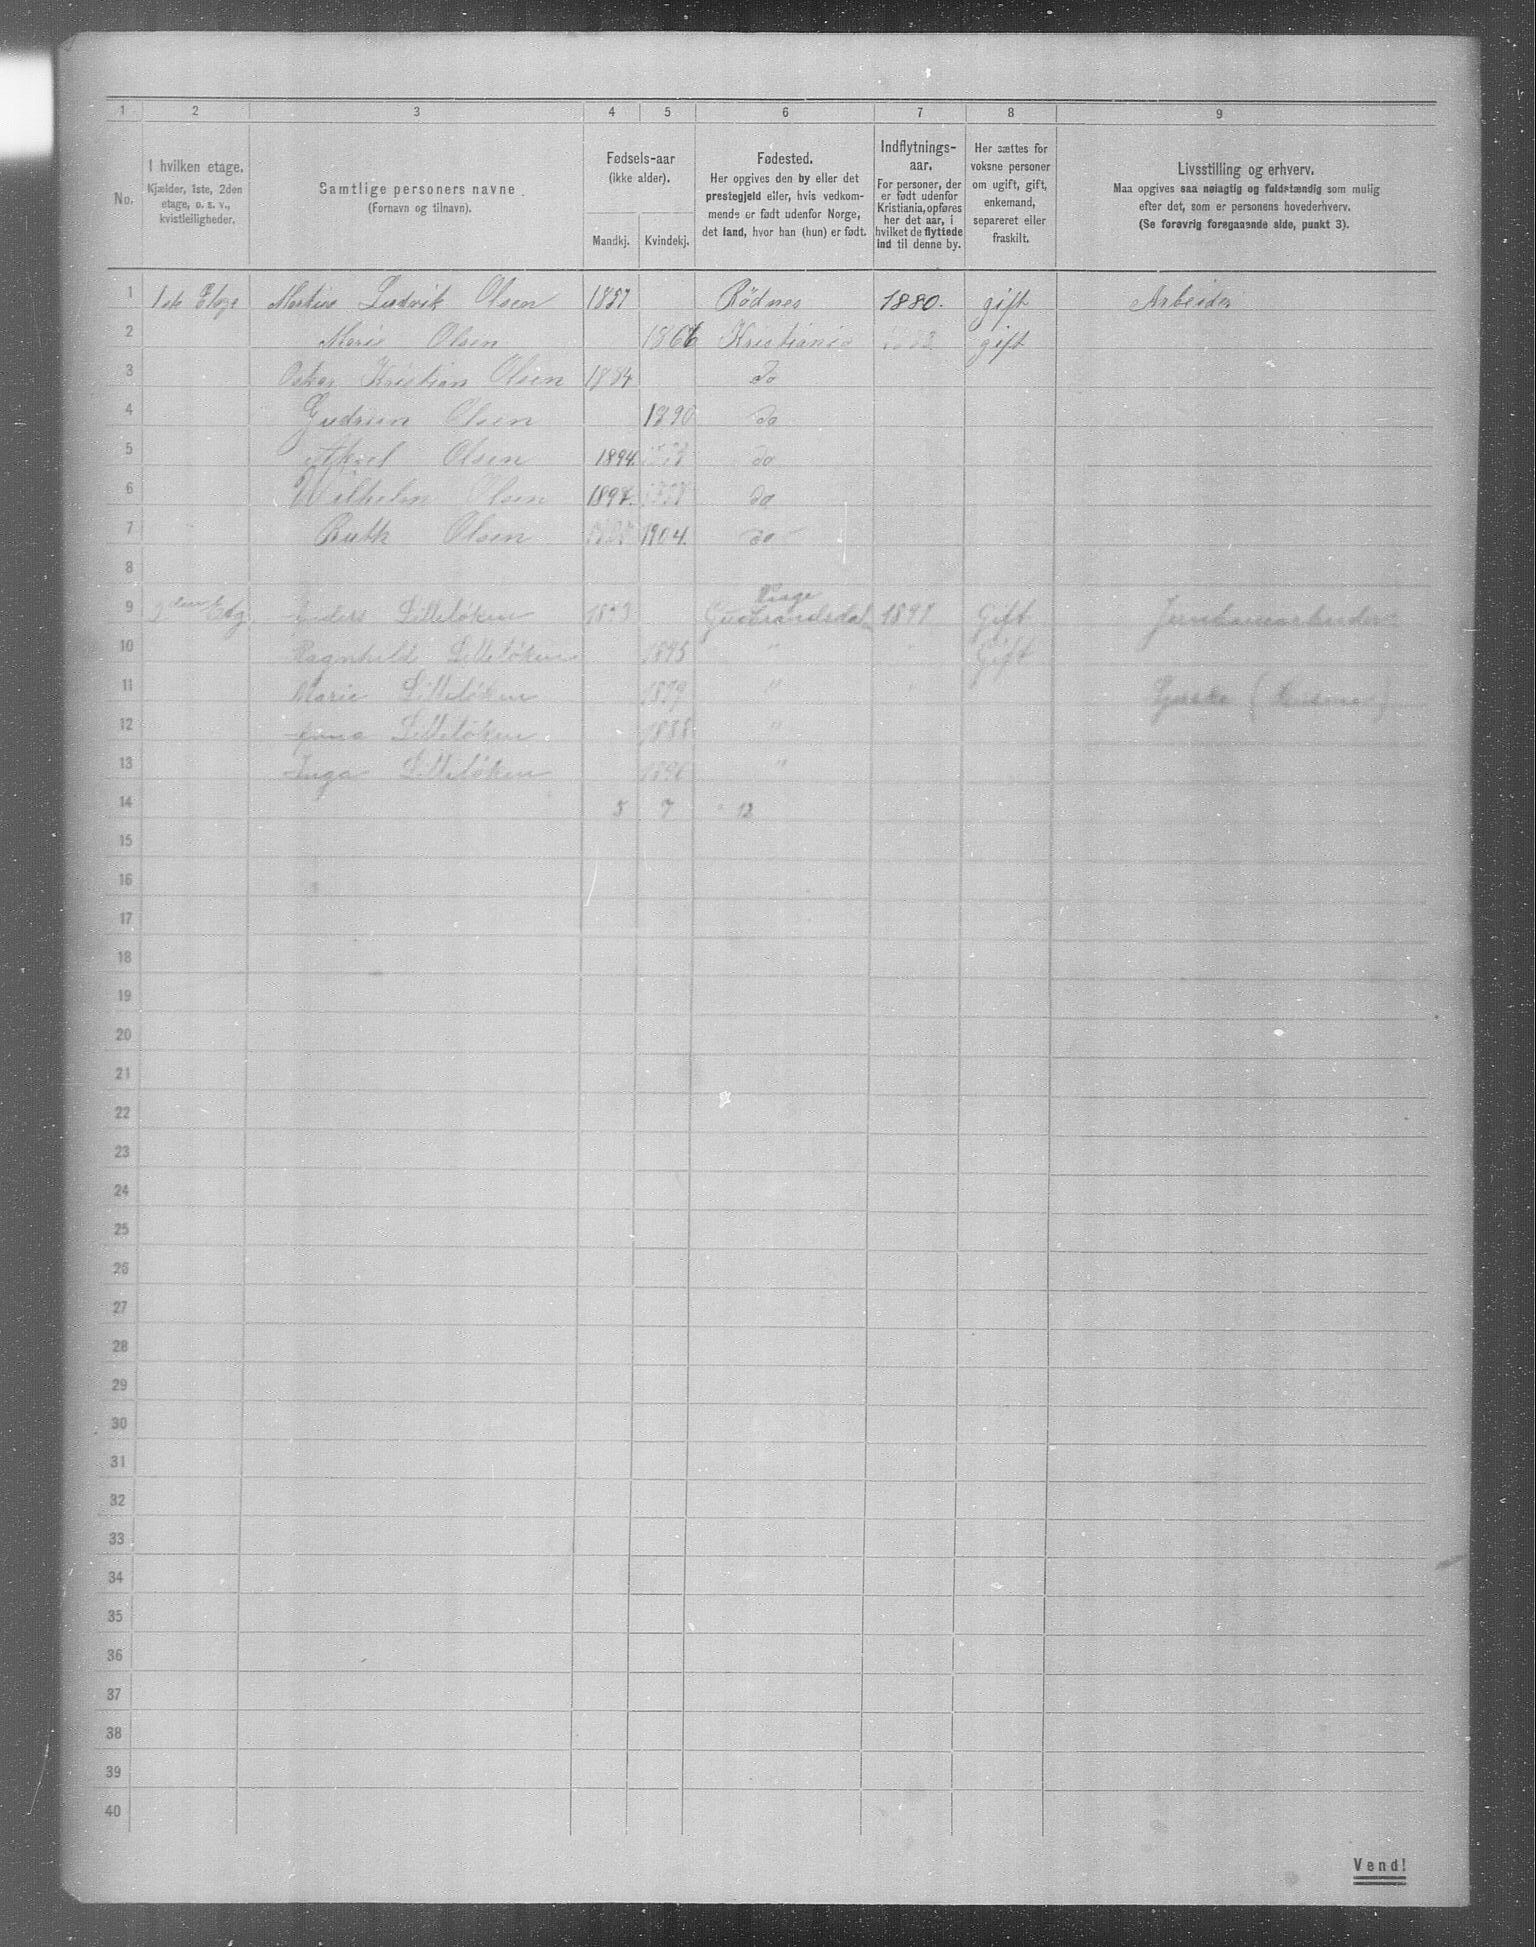 1 2 3 4 5 6 7 8 9
No.
I hvilken etage.
Kjælder, 1ste, 2den
etage, o. s. v.,
kvistleiligheder.
Samtlige personers navne
(Fornavn og tilnavn).
Fødsels-aar
(ikke alder).
Mandkj. Kvindekj.
Fødested.
Her opgives den by eller det
prestegjeld eller, hvis vedkom-
mende er født udenfor Norge,
det land, hvor han (hun) er født.
Indflytnings-
aar.
For personer, der
er født udenfor
Kristiania, opføres
her det aar, i
hvilket de flyttede
ind til denne by.
Her sættes for
voksne personer
om ugift, gift,
enkemand,
separeret eller
fraskilt.
Livsstilling og erhverv.
Maa opgives saa nøiagtig og fuldstændig som mulig
efter det, som er personens hovederhverv.
(Se forøvrig foregaaende side, punkt 3).
1 1ste Etage Ludvik Olsen 1857 Rödnes 1880. gift Arbeider
2 Marie Olsen 1866 Kristiania gift
3 Oskar Kristian Olsen 1884 do
4 Gudrun Olsen 1890 do
5 Olsen 1894. do
6 Wilhelm Olsen 1897. do
7 Ruth Olsen 1904. do
8
Vaage
9 Anders Lilleløken Gudbrandsdal 1897 Gift
10 Ragnhild Lilleløken " " Gift
11 Marie Lilleløken 1879 " "
12 Lilleløken 1888 "
13 Inga Lilleløken "
14 5 7 12
15
16
17
18
19
20
21
22
23
24
25
26
27
28
29
30
31
32
33
34
35
36
37
38
39
40
Vend!